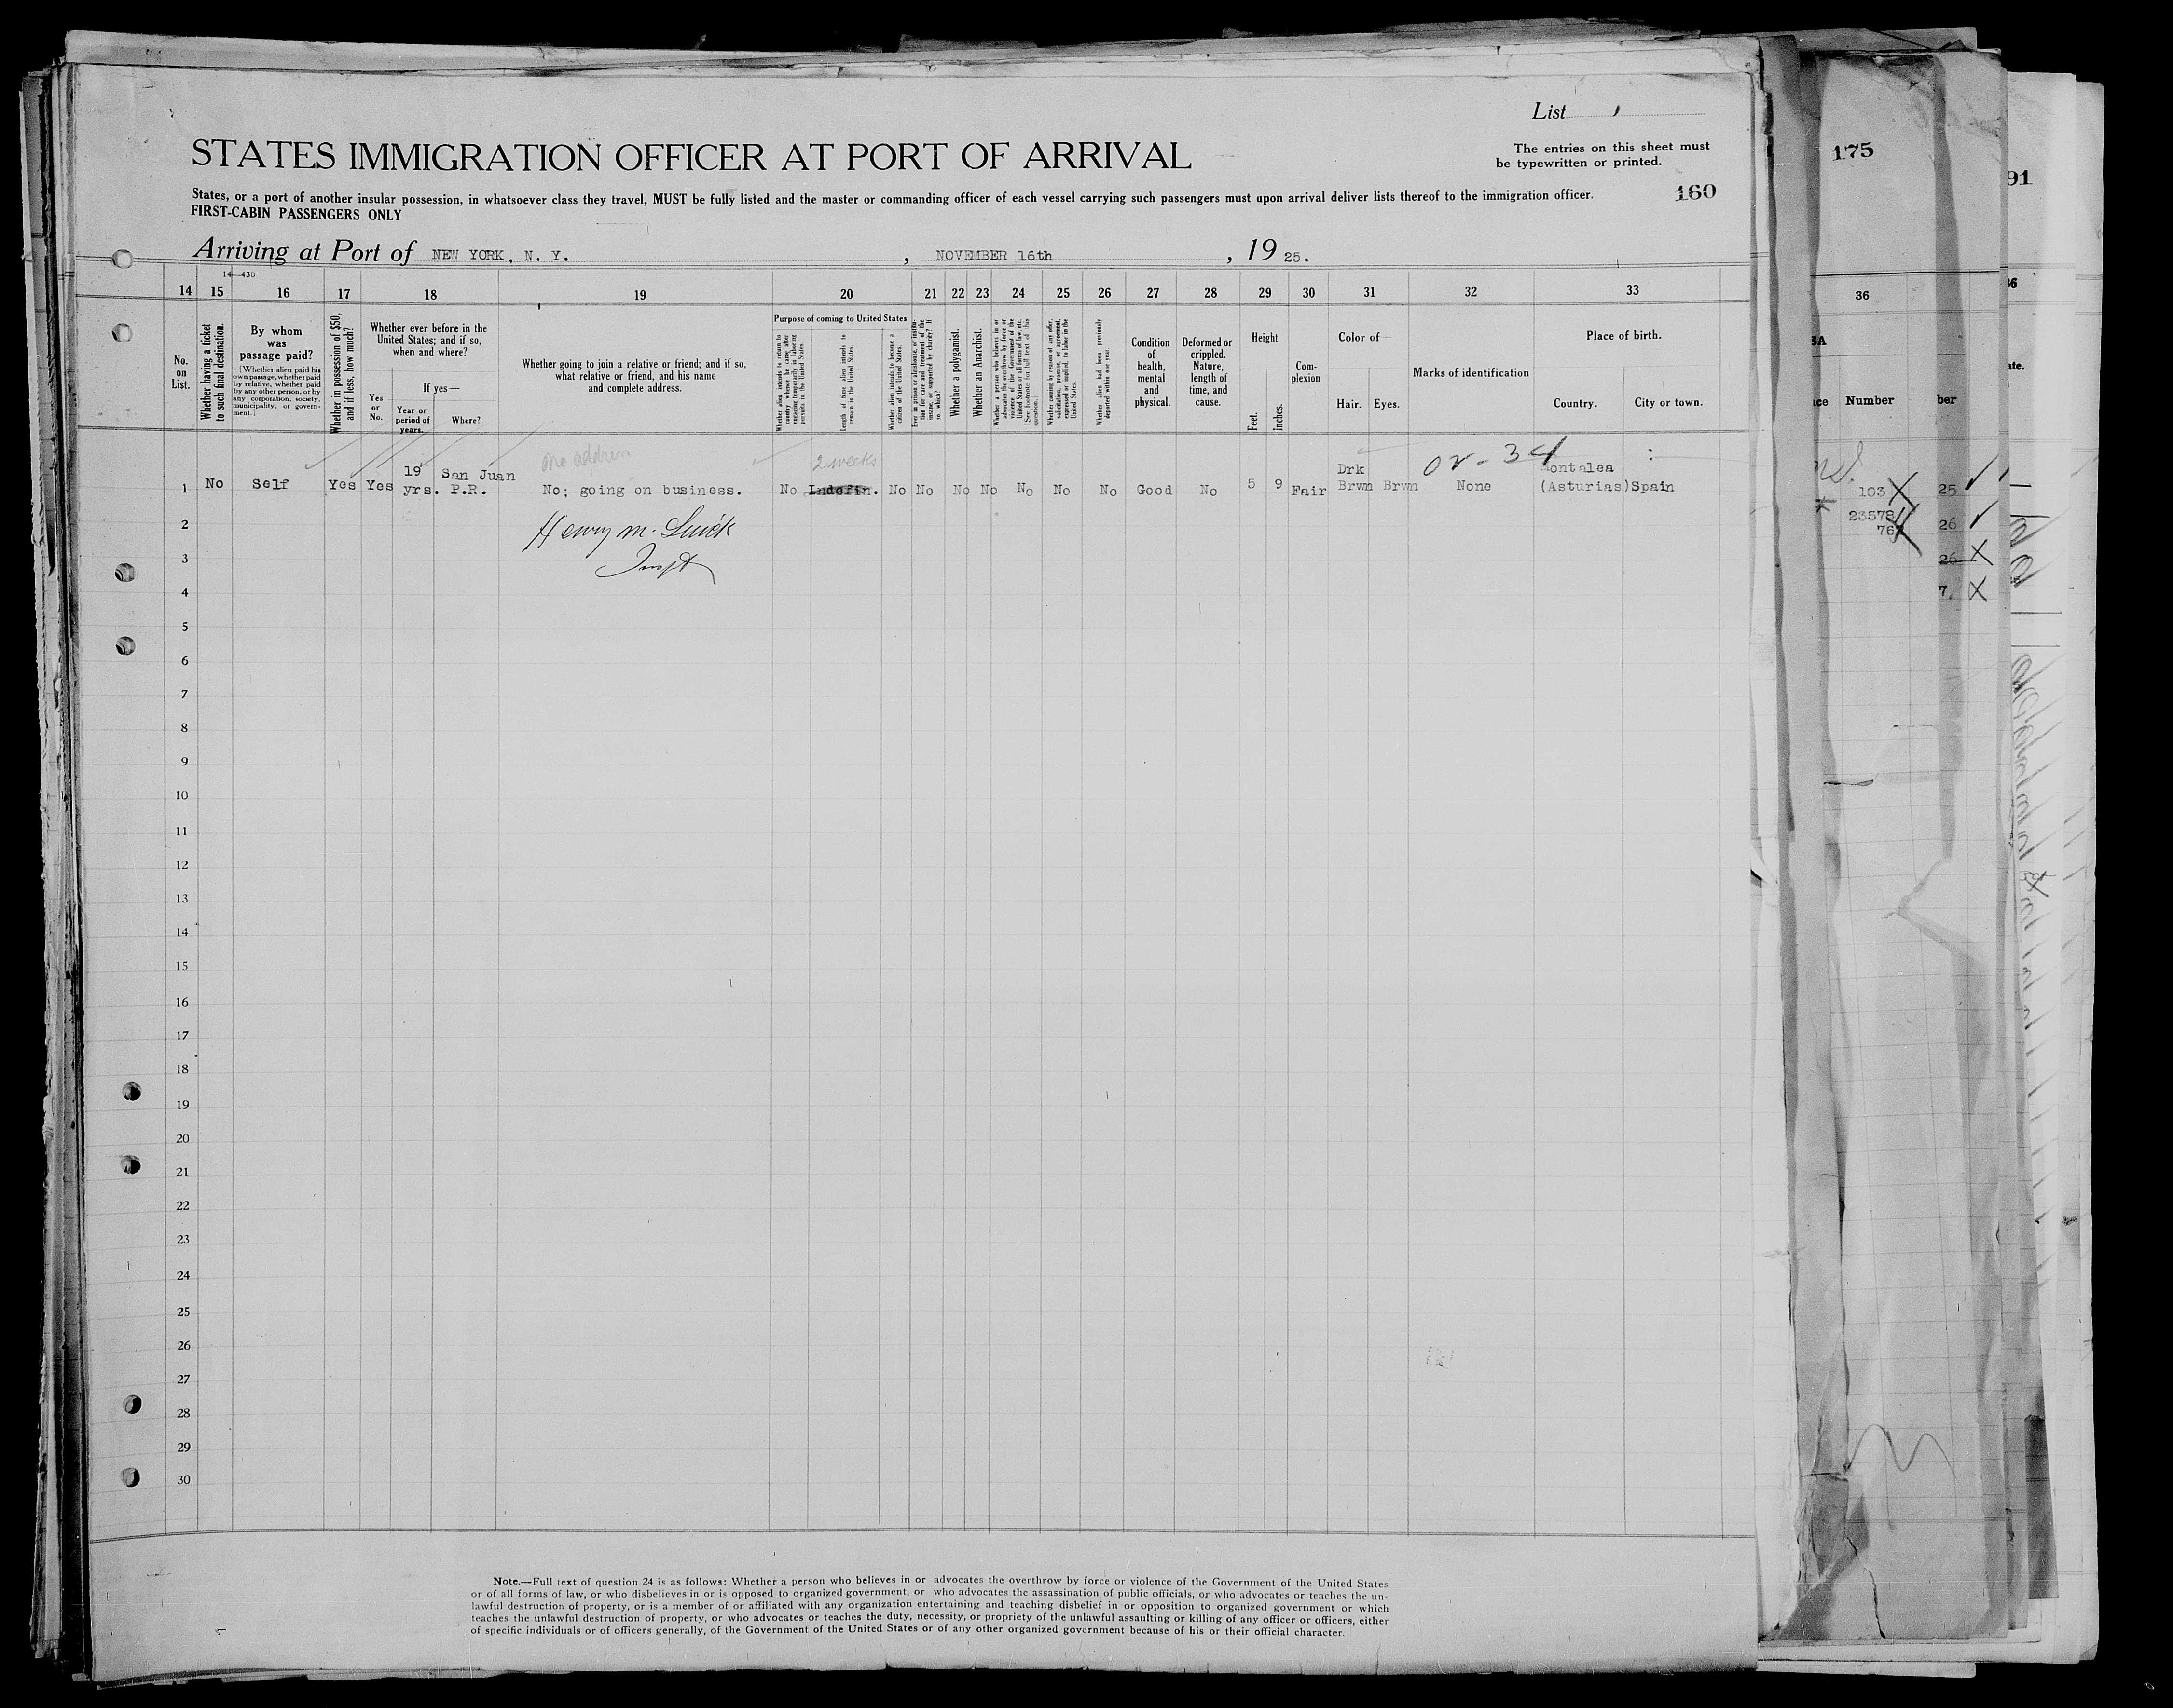 List
STATES IMMIGRATION OFFICER AT PORT OF ARRIVAL
The entries on this sheet must
be typewritten or printed.
States, or a port of another insular possession, in whatsoever class they travel, MUST be fully listed and the master or commanding officer of each vessel carrying such passengers must upon arrival deliver lists thereof to the immigration officer.
FIRST-CABIN PASSENGERS ONLY
160
Arriving at Port of NEW YORK, N. Y. , NOVEMBER 16th , 19 25.
14—430
14 15 16 17 18 19 20 21 22 23 24 25 26 27 28 29 30 31 32 33
No. on List.
Whether having a ticket to such final destination.
By whom was passage paid?
[Whether alien paid his own passage, whether paid by relative, whether paid by any other person, or by any corporation, society, municipality, or government.]
Whether in possession of $50, and if less, how much?
Whether ever before in the United States; and if so, when and where?
Yes or No.
If yes—
Year or period of years.
Where?
Whether going to join a relative or friend; and if so, what relative or friend, and his name and complete address.
Purpose of coming to United States
Whether alien intends to return to country whence he came after engaging temporarily in laboring pursuits in the United States.
Length of time alien intends to remain in the United States.
Whether alien intends to become a citizen of the United States.
Ever in prison or almshouse, or institution for care and treatment of the insane, or supported by charity? If so, which?
Whether a polygamist.
Whether an Anarchist.
Whether a person who believes in or advocates the overthrow by force or violence of the Government of the United States or all forms of law, etc. (See footnote for full text of this question.)
Whether coming by reason of any offer, solicitation, promise, or agreement, expressed or implied, to labor in the United States.
Whether alien had been previously deported within one year.
Condition of health, mental and physical.
Deformed or crippled. Nature, length of time, and cause.
Height
Feet.
Inches.
Complexion
Color of—
Hair.
Eyes.
Marks of identification
Place of birth.
Country.
City or town.
No address
2 weeks
02-34
1 No Self Yes Yes 19 yrs. San Juan P.R. No; going on business. No Indefin. No No No No No No No Good No 5 9 Fair Drk Brwn Brwn None Montalea (Asturias) Spain
2 Henry M.
3 Inspt
4
5
6
7
8
9
10
11
12
13
14
15
16
17
18
19
20
21
22
23
24
25
26
27
28
29
30
Note.—Full text of question 24 is as follows: Whether a person who believes in or advocates the overthrow by force or violence of the Government of the United States
or of all forms of law, or who disbelieves in or is opposed to organized government, or who advocates the assassination of public officials, or who advocates or teaches the un-
lawful destruction of property, or is a member of or affiliated with any organization entertaining and teaching disbelief in or opposition to organized government or which
teaches the unlawful destruction of property, or who advocates or teaches the duty, necessity, or propriety of the unlawful assaulting or killing of any officer or officers, either
of specific individuals or of officers generally, of the Government of the United States or of any other organized government because of his or their official character.
175
36
Number
103
23578
76
ber
25
26
26
7
91